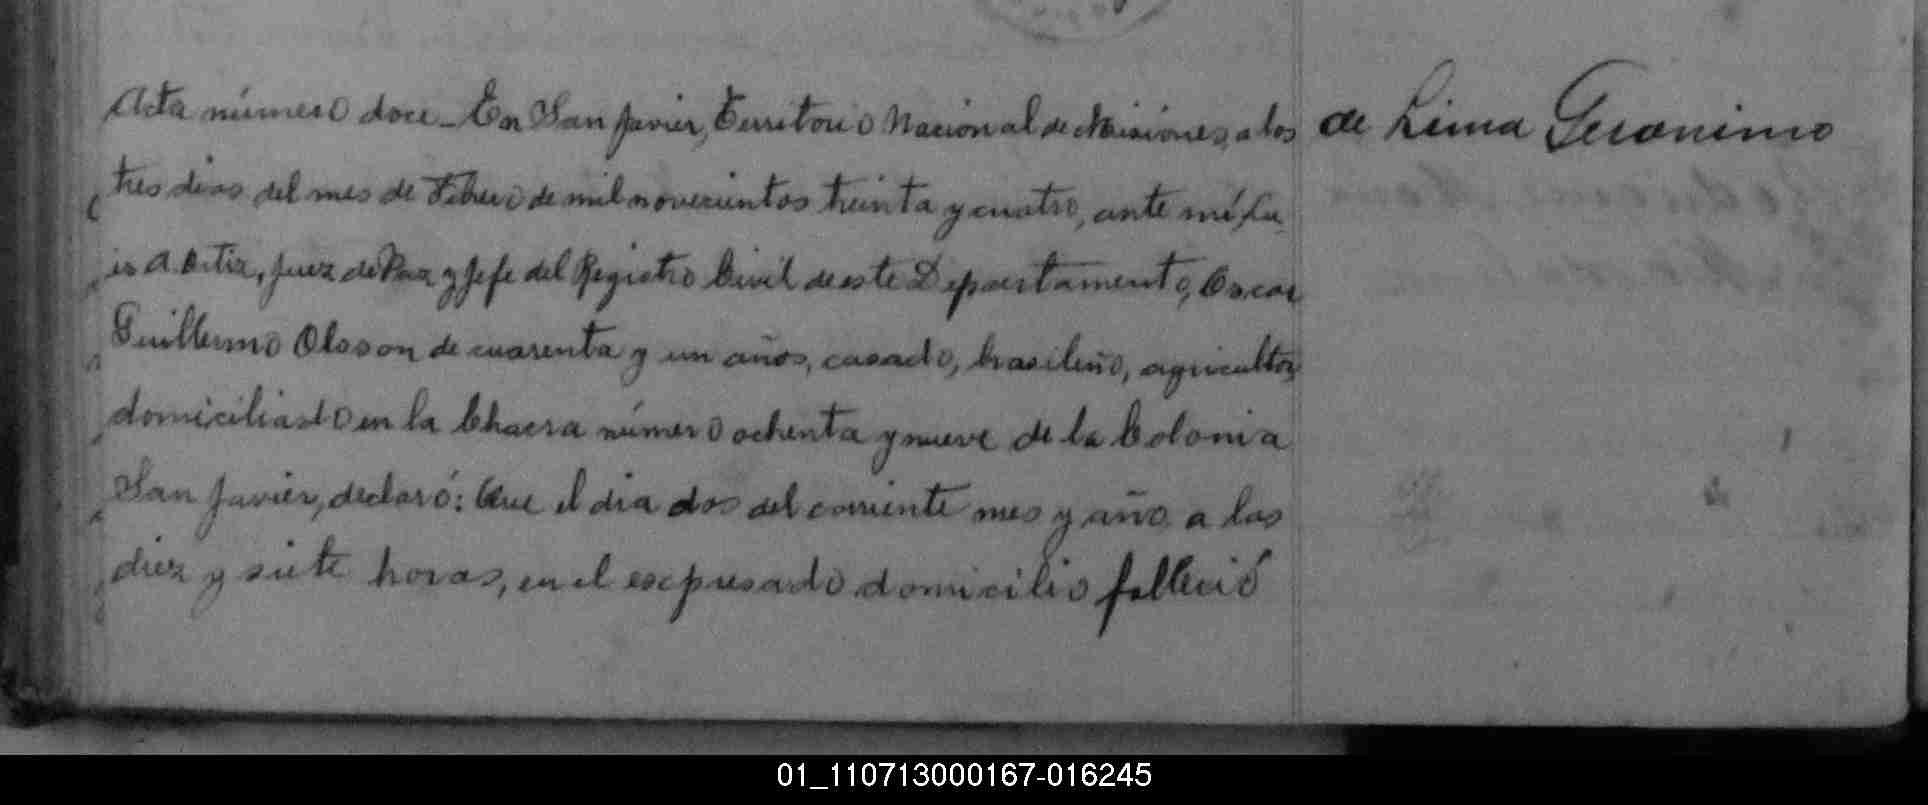 Acta número doce_ En San Javier, Territorio Nacional de Misiones, a los
tres dias del mes de Febrero de mil novecientos treinta y cuatro, ante mí, Lu
is A Ortiz, Juez de Paz y Jefe del Registro Civil de este Departamento, Oscar
Guillermo Olsson de cuarenta y un años, casado, brasileño, agricultor,
domiciliado en la Chacra número ochenta y nueve de la Colonia
San Javier, declaró: Que el dia dos del corriente mes y año a las
diez y siete horas, en el expresado domicilio falleció
de Lima Geronimo
01_110713000167-016245